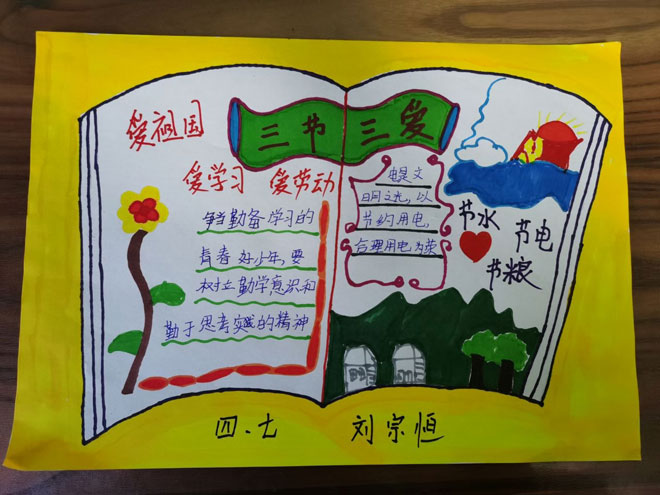 三节三爱
爱祖国
爱学习 爱劳动
争当勤备学习的
青春好少年,要
树立勤学意识和
勤于思考实践的精神
电是文
明之光,以
节约用电,
合理用电为荣
节水
节电
节粮
四、七 刘宗恒